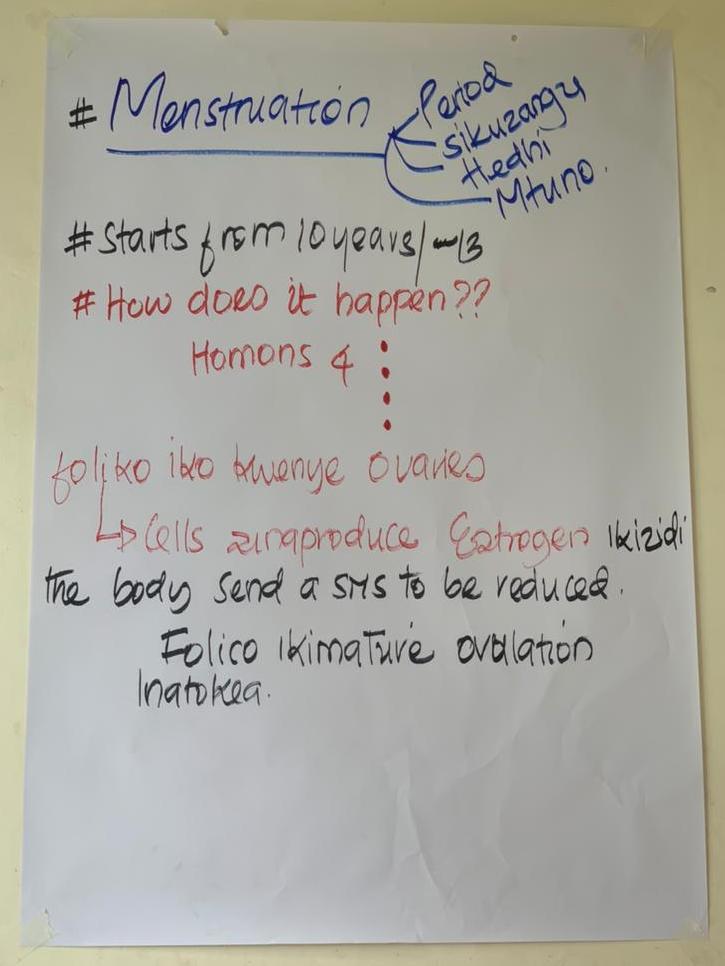 # Menstruation
Period
sikuzangu
Hedhi
Mtuno.
# Starts from 10 years/-13
# How does it happen??
Homons 4
foliko iko kwenye ovaries
Cells zinaproduce Estrogen ikizidi
the body send a SMS to be reduced.
Folico ikimature ovulation
Inatokea.